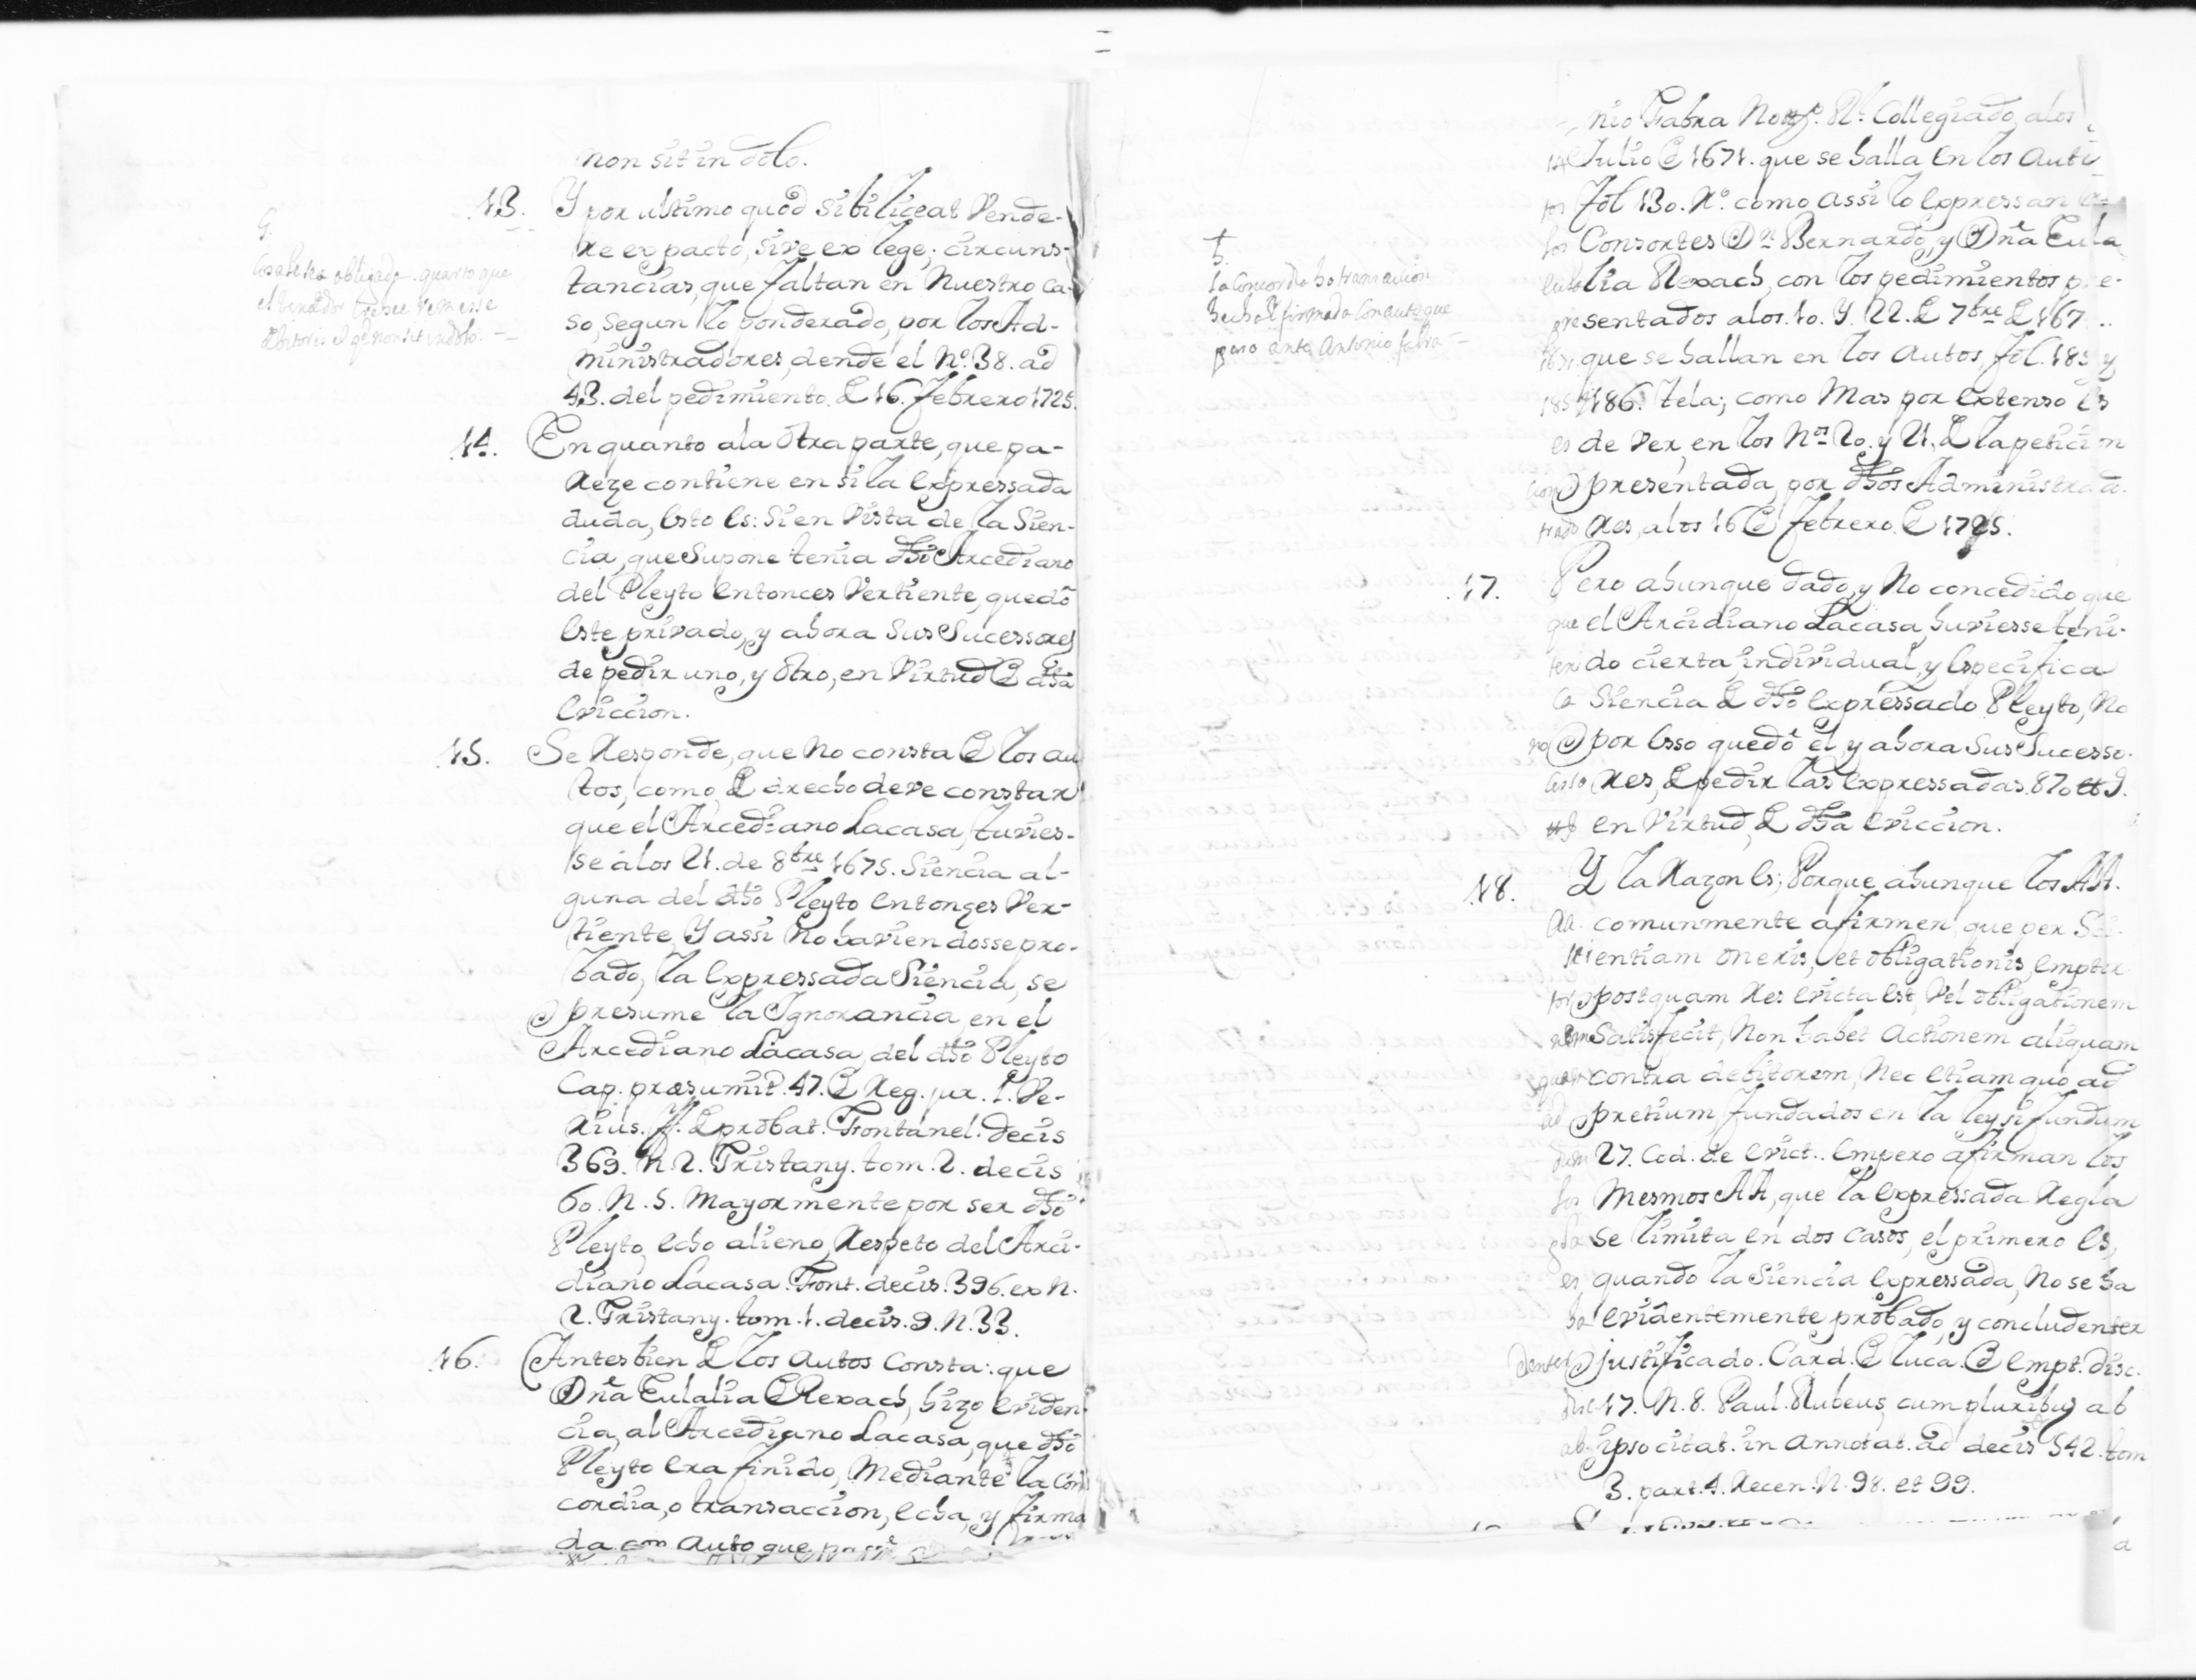 non sit in dolo.
13. Y por ultimo quòd sibi liceat vende-
re ex pacto, sive ex lege; circuns-
tancias, que faltan en Nuestro ca-
so, segun lo ponderado, por los Ad-
ministradores, dende el Nº. 38. ad
43. del pedimiento de 16. Febrero 1725.
14. En quanto ala otra parte, que pa-
reze contiene en si la expressada
duda, esto es: Si en vista de la Sien-
cia, que Supone tenia dho Arcediano
del Pleyto entonces vertiente, quedò
este privado, y ahora sus Sucessores
de pedir uno, y otro, en virtud de dha
eviccion.
15. Se responde, que no consta de los au
tos, como de drecho deve constar
que el Arcediano Lacasa, tuvies-
se álos 21. de 8bre 1675. Siencia al-
guna del dho Pleyto entonzes ver-
tiente, Y assi no havien dosse pro-
bado, la expressada Siencia, se
presume la Ignorancia en el
Arcediano Lacasa, del dho Pleyto
Cap. præsumit. 47. de Reg. jur. l. Ve-
rius. ff. de probat. Fontanel. decis
369. n. 2. Tristany. tom. 2. decis
60. N. 5. Mayormente por ser dho
Pleyto, echo alieno, Respeto del Arci-
diano Lacasa. Font. decis. 396. ex N.
2. Tristany. tom. 1. decis. 9. N. 33.
16. Antes bien de los Autos Consta: que
Dña Eulalia de Rexach, hizo eviden-
cia, al Arcediano Lacasa, que dho
Pleyto era finido, Mediante la Con
cordia, o transaccion, echa, y firma
da con Auto que passò
G.
quarto que
t
5.
la Concordia ho transaccion
hecha y firmada Con auto que
paso ante Antonio fabra
nio Fabra Nott. Rl. Collegiado, alos
14 Julio de 1671. que se halla en los Auti
tos Fol 130. Rº. como assi lo expressan
los Consortes Dn. Bernardo, y Dña Eula
lia Rexach, con los pedimientos pre-
sentados alos. 10. Y. 22. de 7bre de 167
que se hallan en los Autos, fol. 185 y
185 y 186. tela; como Mas por extenso es
es de ver, en los Nos. 20. y 21. de la peticion
presentada, por dhos Administrado
trado res, alos 16 de febrero de 1725.
17. Pero ahunque dado, y no concedido que
que el Arcidiano Lacasa, huviesse teni-
teni do cierta, individual, y especifica
ca Siencia de dho expressado Pleyto, No
no por esso quedò él, y ahora sus Sucesso-
cesso res, de pedir las expressadas. 870 ₶.
en virtud, de dha eviccion.
18. Y la razon es; Porque ahunque los AA.
AA. comunmente afirmen, que per Sci-
entiam oneris, et obligationis, emptor
tor postquam res evicta est, vel obligationem
nem Satisfecit, Non habet Actionem aliquam
quam contra debitorem, Nec etiam quo ad
ad pretium, fundados en la ley si fundum
dum 27. Cod. de evict. empero afirman los
los Mesmos AA, que la expressada Regla
gla se limita en dos casos, el primero es,
es, quando la Siencia expressada, No se ha
ha evidentemente probado, y concludenter
denter justificado. Card. de Luca. de empt. disc.
disc 17. N. 8. Paul. Rubeus, cum pluribus ab
ab ipso citat. in Annotat. ad decis 542. tom
3. part. 4. Recen. N. 98. et 99.